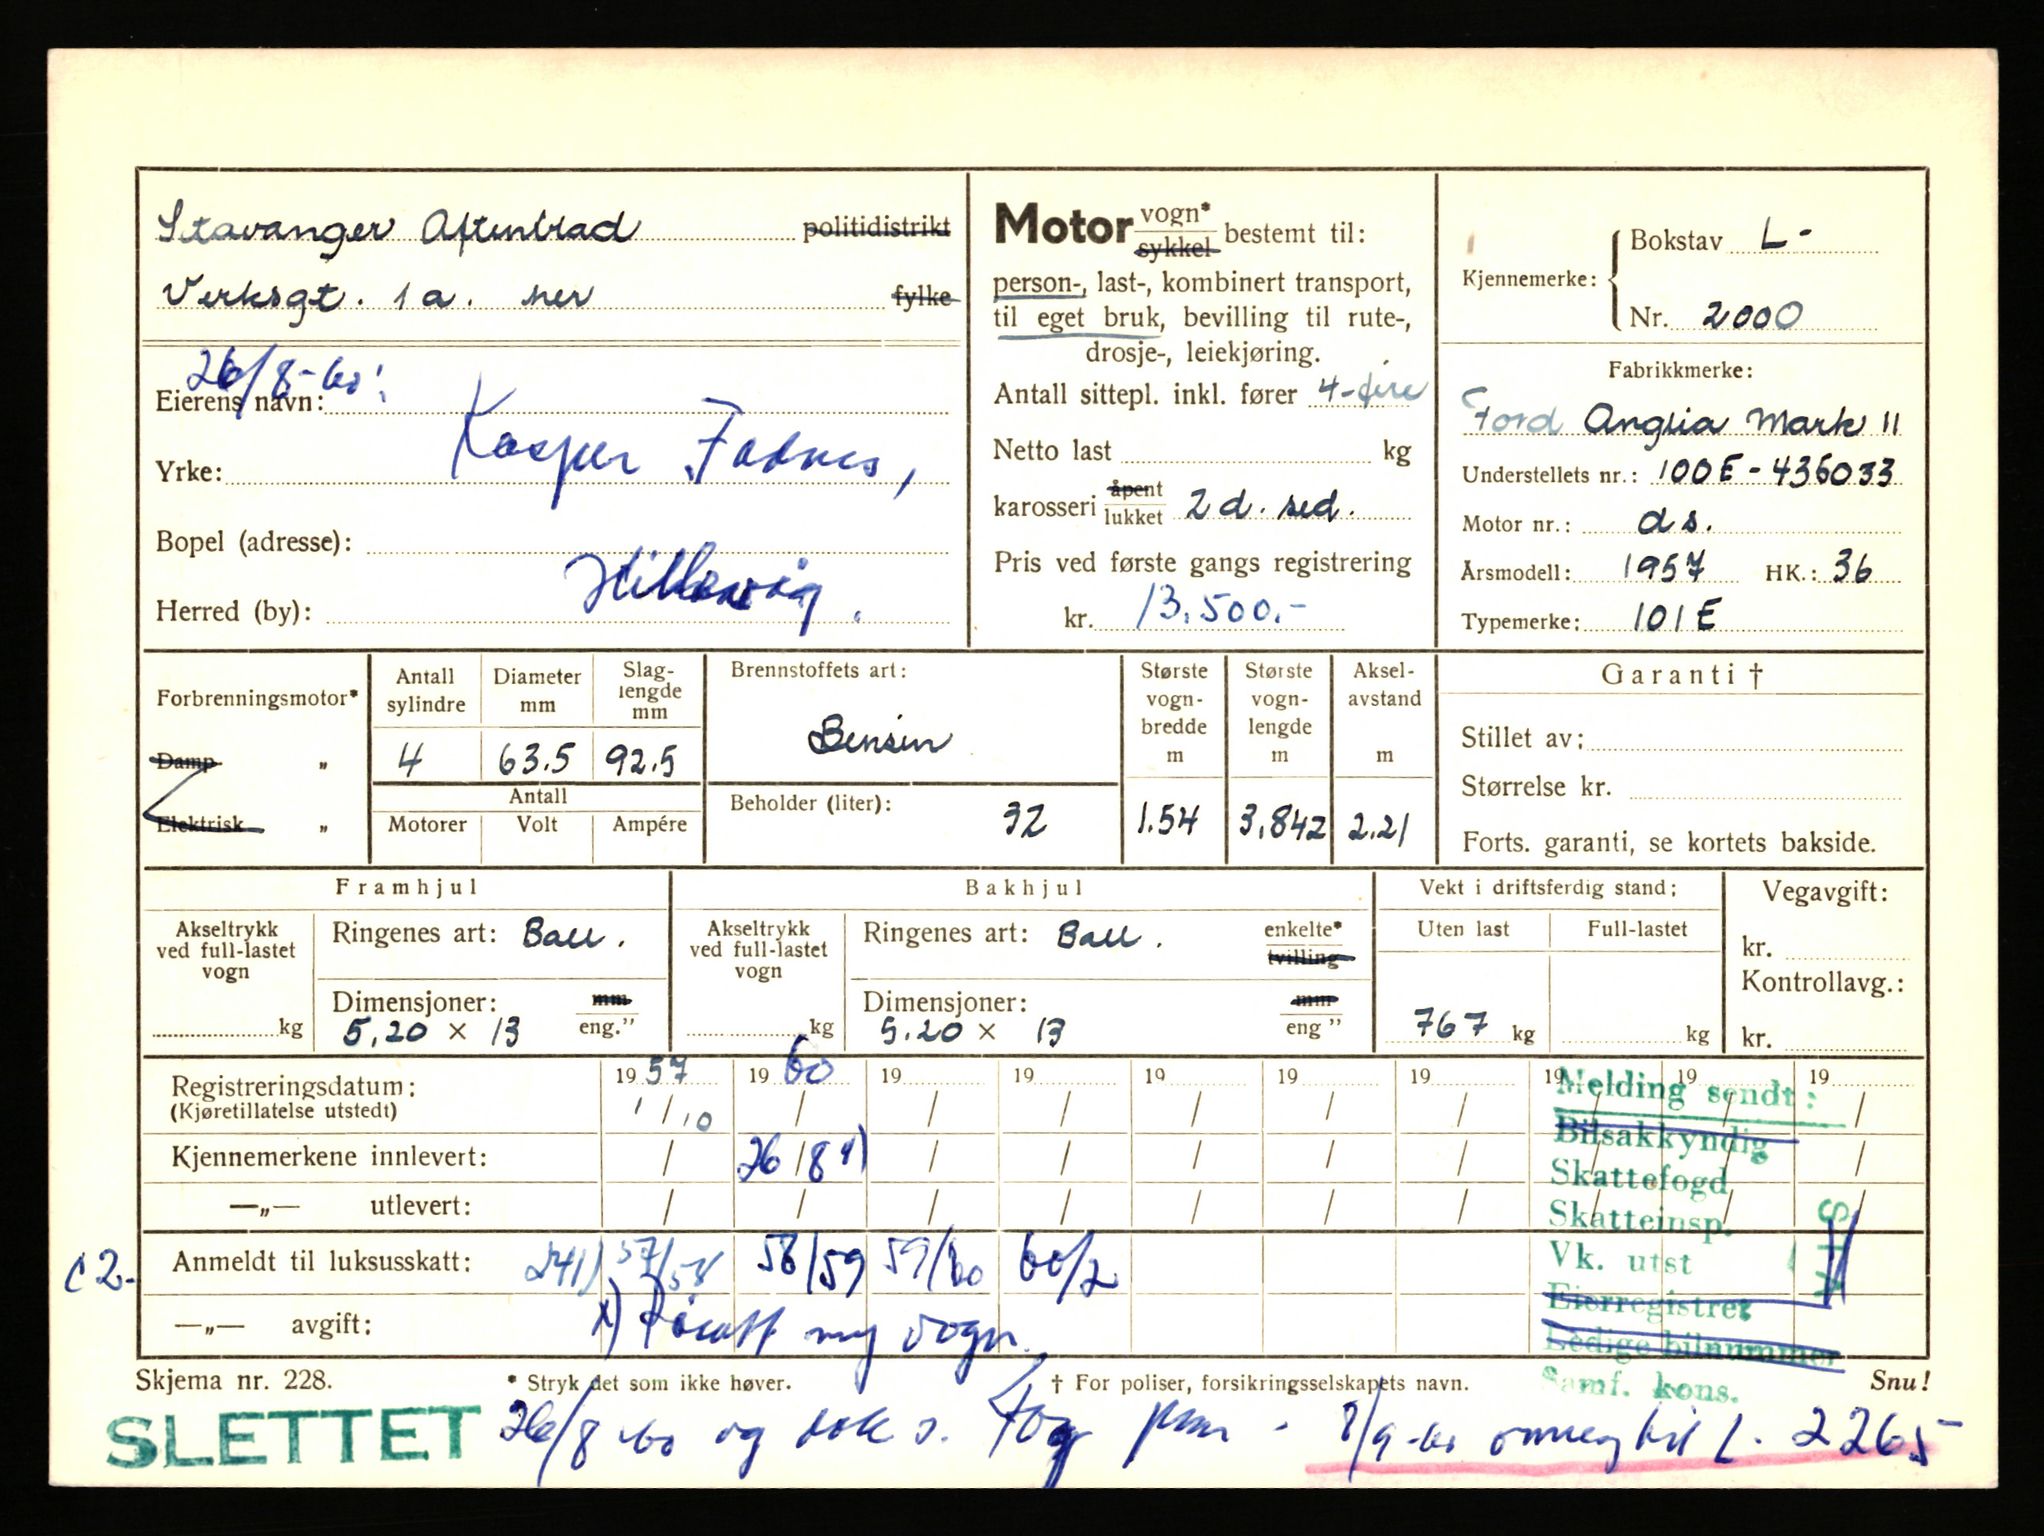 Stavanger Aftenblad politidistrikt
Verksgt. 1a. her fylke
26/8-60:
Eierens navn: Kasper Fadnes,
Yrke:
Bopel (adresse):
Hillevåg.
Herred (by):
Motor vogn* sykkel bestemt til:
person-, last-, kombinert transport,
til eget bruk, bevilling til rute-,
drosje-, leiekjøring.
Antall sittepl. inkl. fører 4-fire
Netto last kg
karosseri åpent lukket 2 d. sed.
Pris ved første gangs registrering
kr. 13.500.-
Kjennemerke: Bokstav L-
Nr. 2000
Fabrikkmerke:
Ford Anglia Mark II
Understellets nr.: 100E-436033
Motor nr.: ds.
Årsmodell: 1957 HK.: 36
Typemerke: 101E
Forbrenningsmotor*
Damp „
Elektrisk „
Antall sylindre 4
Diameter mm 63.5
Slaglengde mm 92.5
Antall
Motorer Volt Ampére
Brennstoffets art:
Bensin
Beholder (liter): 32
Største vogn-bredde m 1.54
Største vogn-lengde m 3.842
Aksel-avstand m 2.21
Garanti †
Stillet av:
Størrelse kr.
Forts. garanti, se kortets bakside.
Framhjul
Akseltrykk ved full-lastet vogn kg
Ringenes art: Ball.
Dimensjoner: mm
5.20 × 13 eng."
Bakhjul
Akseltrykk ved full-lastet vogn kg
Ringenes art: Ball. enkelte* tvilling
Dimensjoner: mm
5.20 × 13 eng "
Vekt i driftsferdig stand:
Uten last Full-lastet
767 kg kg
Vegavgift:
kr.
Kontrollavg.:
kr.
Registreringsdatum: 1957 1960 19 19 19 19 19 19 19 19
(Kjøretillatelse utstedt) 1/10 / / / / / / / / /
Kjennemerkene innlevert: / 26/8 / / / / / / / /
—„— utlevert: / / / / / / / / / /
c2- Anmeldt til luksusskatt: 241) 57/58 58/59 59/60 60/2
—„— avgift: x) Påsatt ny vogn.
Melding sendt:
Bilsakkyndig
Skattefogd
Skatteinsp.
Vk. utst
Eierregistret
Ledige bilnummer
Samf. kons.
Skjema nr. 228. * Stryk det som ikke høver. † For poliser, forsikringsselskapets navn. Snu!
SLETTET 26/8-60 og dok s. - 8/9-60 omreg til L-2265